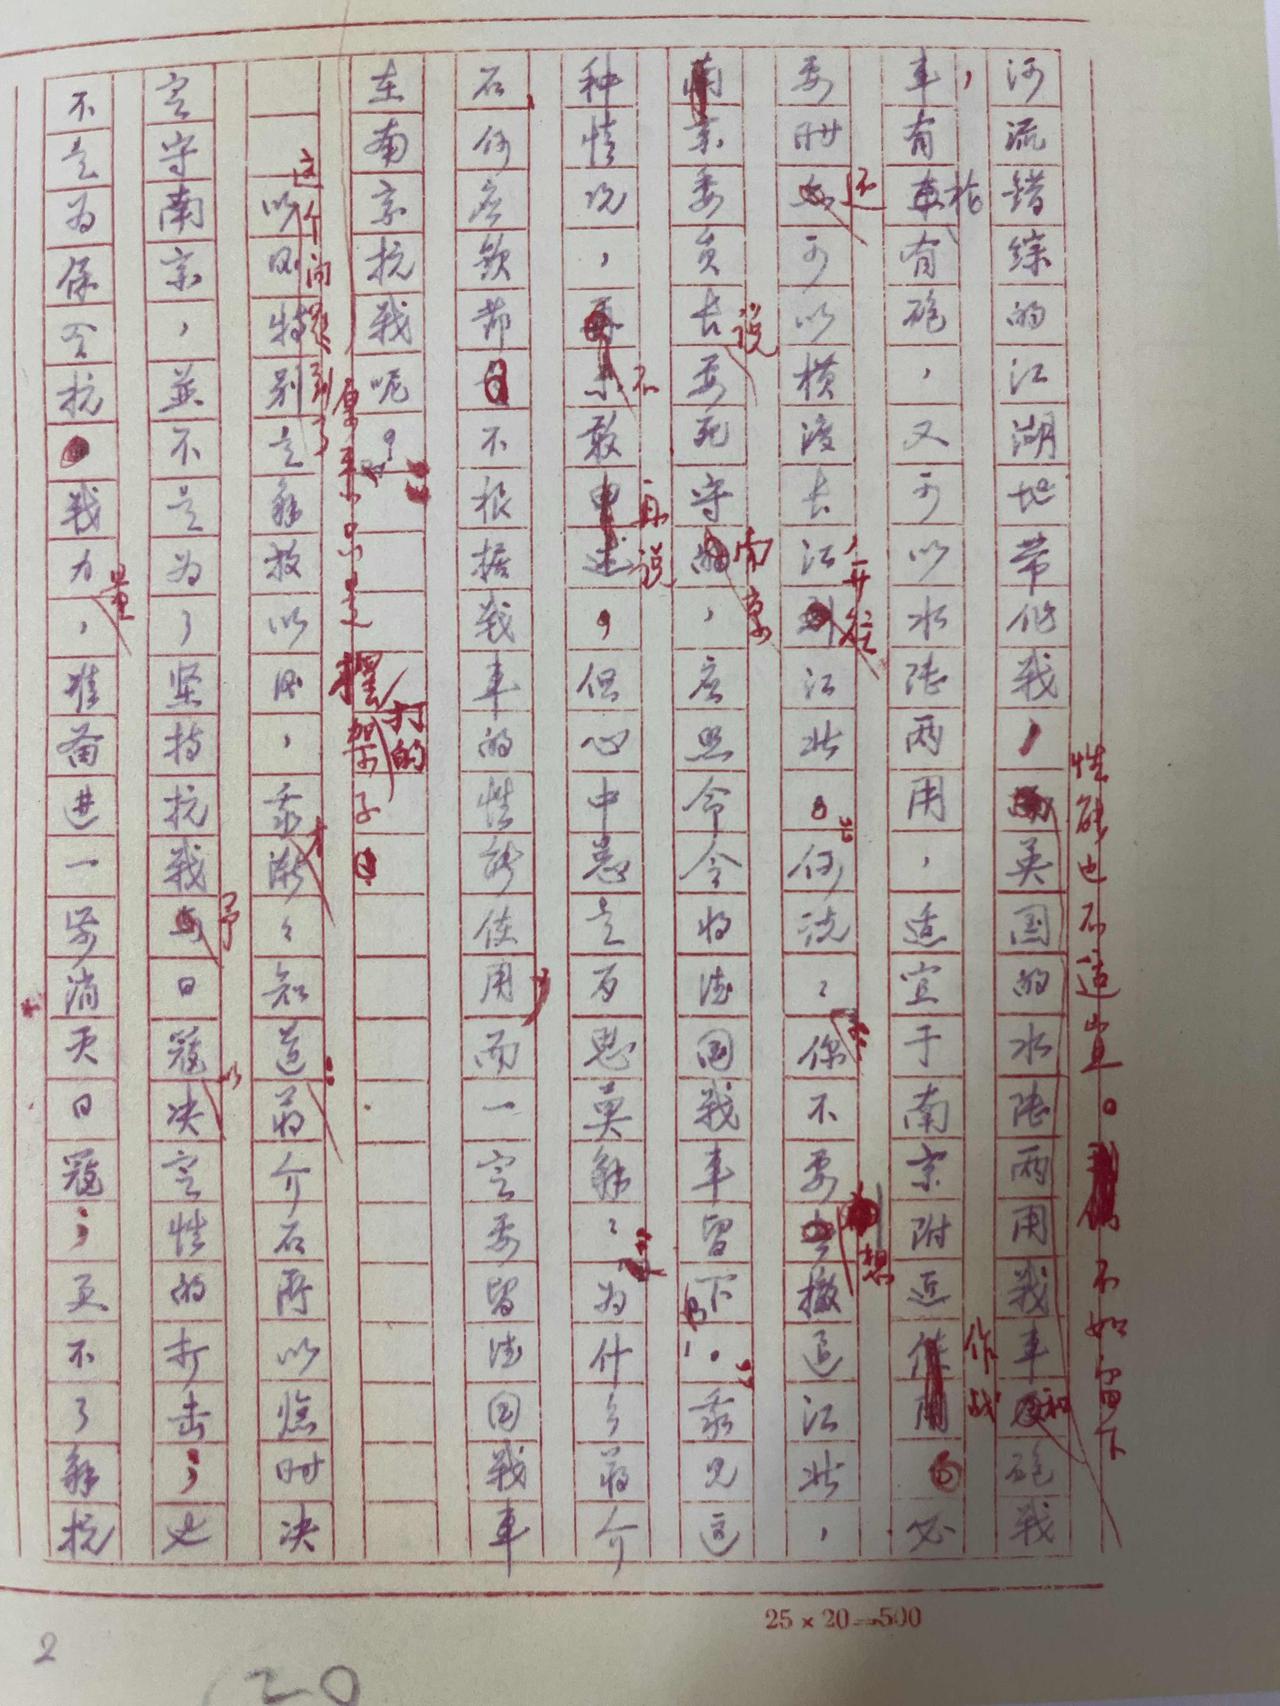 河流错综的江湖地带作战，英国的水陆两用战车和砲战
性能也不适宜。不如留下
车，有枪有砲，又可以水陆两用，适宜于南京附近作战。必
要时还可以横渡长江，开往江北。”何说：“你不要想撤退江北，
委员长说要死守南京，应照命令将德国战车留下。”我见这
种情况，不敢再说，但心中总是百思莫解：为什么蒋介
石、何应钦都不根据战车的性能使用，而一定要留德国战车
在南京抗战呢？
原来只是摆
打的
架子
这个问题到了
以后特别是解放以后，我才渐々知道：蒋介石所以当时决
定守南京，并不是为了坚持抗战予日寇以决定性的打击；也
不是为保全抗战力量，准备进一步消灭日寇；更不了解抗
25 × 20=500
2
20